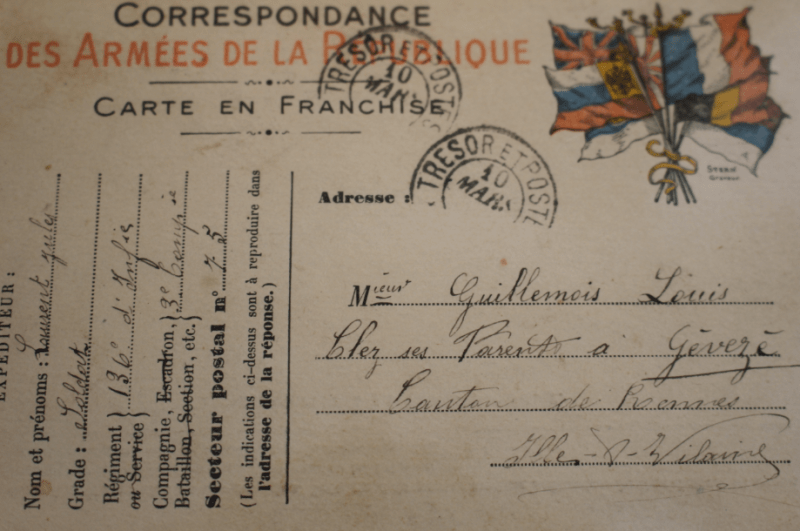 CORRESPONDANCE
DES ARMÉES DE LA RÉPUBLIQUE
CARTE EN FRANCHISE
TRESOR ET POSTES
10
MARS
TRESOR ET POSTE
10
MARS
STERN
Graveur
Adresse :
Mieur Guillemois Louis
Chez ses Parents a Gévezé
Canton de Rennes
Ille-&-Vilaine
EXPÉDITEUR :
Nom et prénoms : Laurent Jules
Grade : Soldat
Régiment } 136e d'Infie
ou Service }
Compagnie, Escadron, } 3e Compie
Bataillon, Section, etc. }
Secteur postal n° 75
(Les indications ci-dessus sont à reproduire dans
l'adresse de la réponse.)